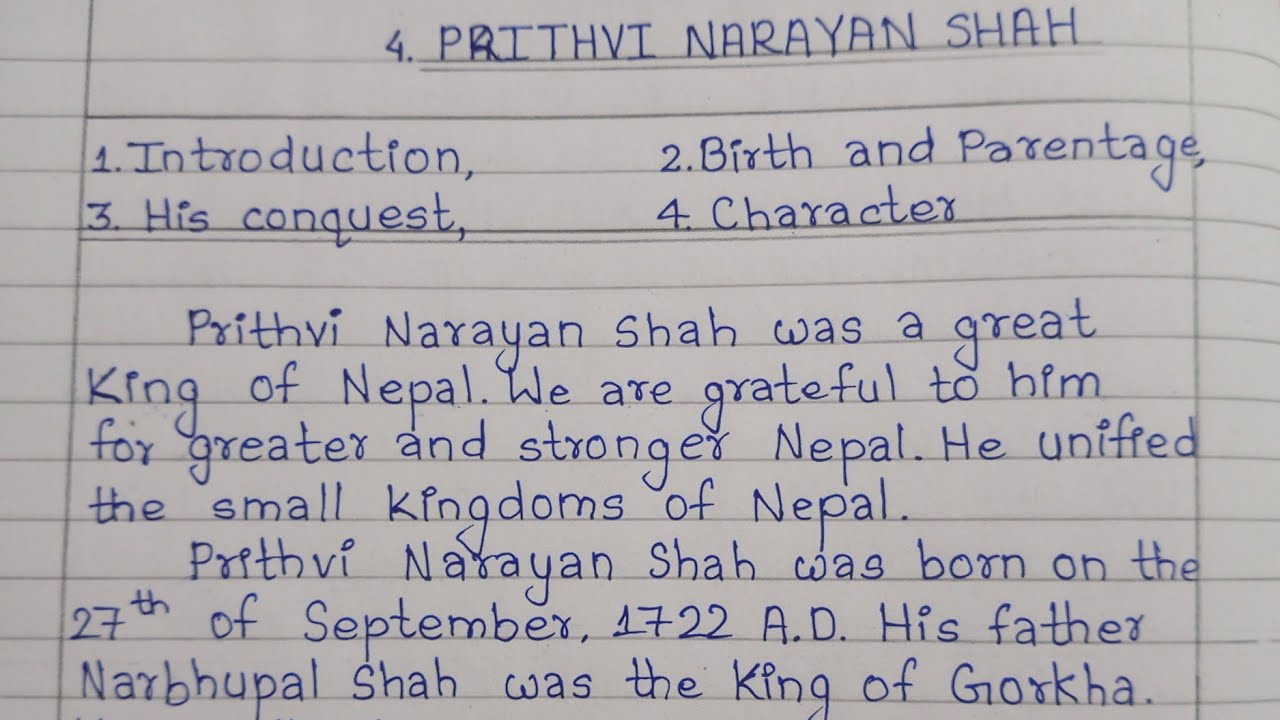 4. PRITHVI NARAYAN SHAH
1. Introduction, 2. Birth and Parentage,
3. His conquest, 4. Character
Prithvi Narayan Shah was a great
King of Nepal. We are grateful to him
for greater and stronger Nepal. He unified
the small kingdoms of Nepal.
Prithvi Narayan Shah was born on the
27th of September, 1722 A.D. His father
Narbhupal Shah was the King of Gorkha.